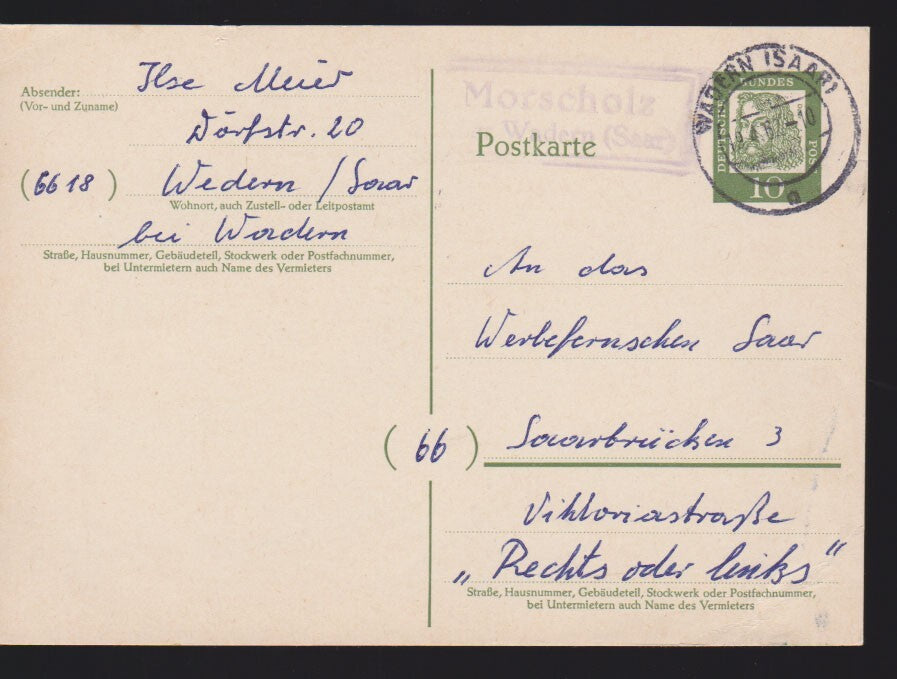 Absender:
(Vor- und Zuname)
Ilse Meier
Dorfstr. 20
(6618) Wedern / Saar
Wohnort, auch Zustell- oder Leitpostamt
bei Wadern
Straße, Hausnummer, Gebäudeteil, Stockwerk oder Postfachnummer,
bei Untermietern auch Name des Vermieters
Morscholz
Wadern (Saar)
Postkarte
WADERN (SAAR)
a
DEUTSCHE BUNDESPOST
10
An das
Werbefernsehen Saar
(66) Saarbrücken 3
Viktoriastraße
„Rechts oder links"
Straße, Hausnummer, Gebäudeteil, Stockwerk oder Postfachnummer,
bei Untermietern auch Name des Vermieters